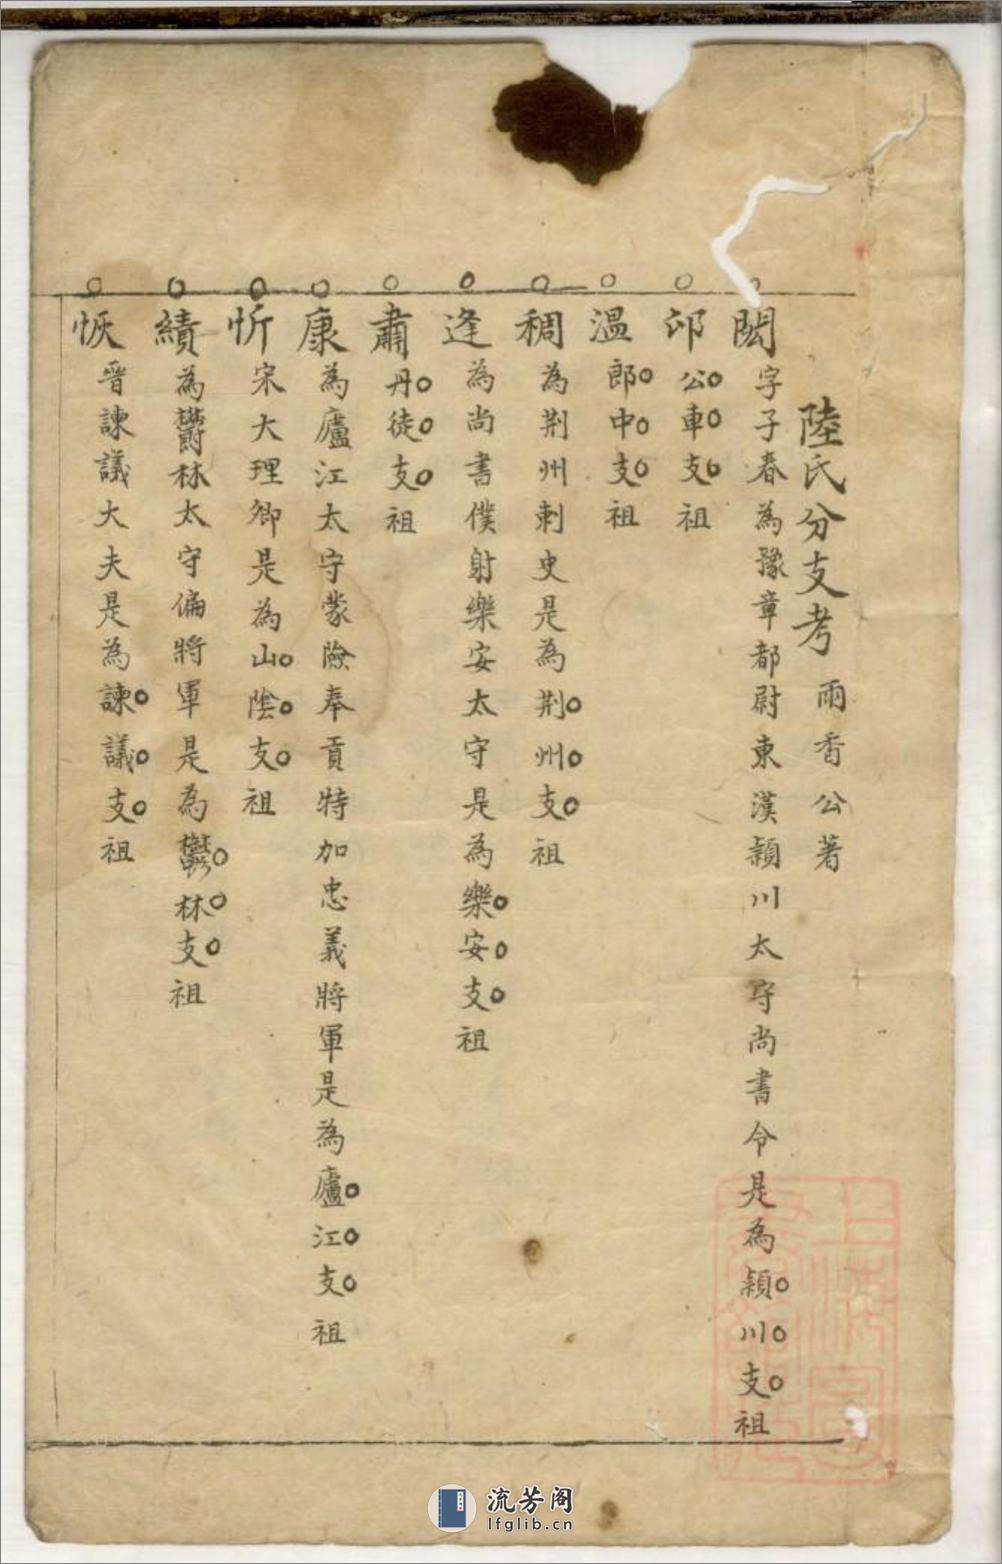 陸氏分支考 雨香公著
閎 字子春為豫章都尉東漢潁川太守尚書令是為潁川支祖
邛 公車支祖
溫 郎中支祖
稠 為荆州刺史是為荆州支祖
逢 為尚書僕射樂安太守是為樂安支祖
肅 丹徒支祖
康 為廬江太守蒙險奉貢特加忠義將軍是為廬江支祖
忻 宋大理卿是為山陰支祖
績 為鬱林太守偏將軍是為鬱林支祖
恢 晉諫議大夫是為諫議支祖
流芳阁
lfglib.cn